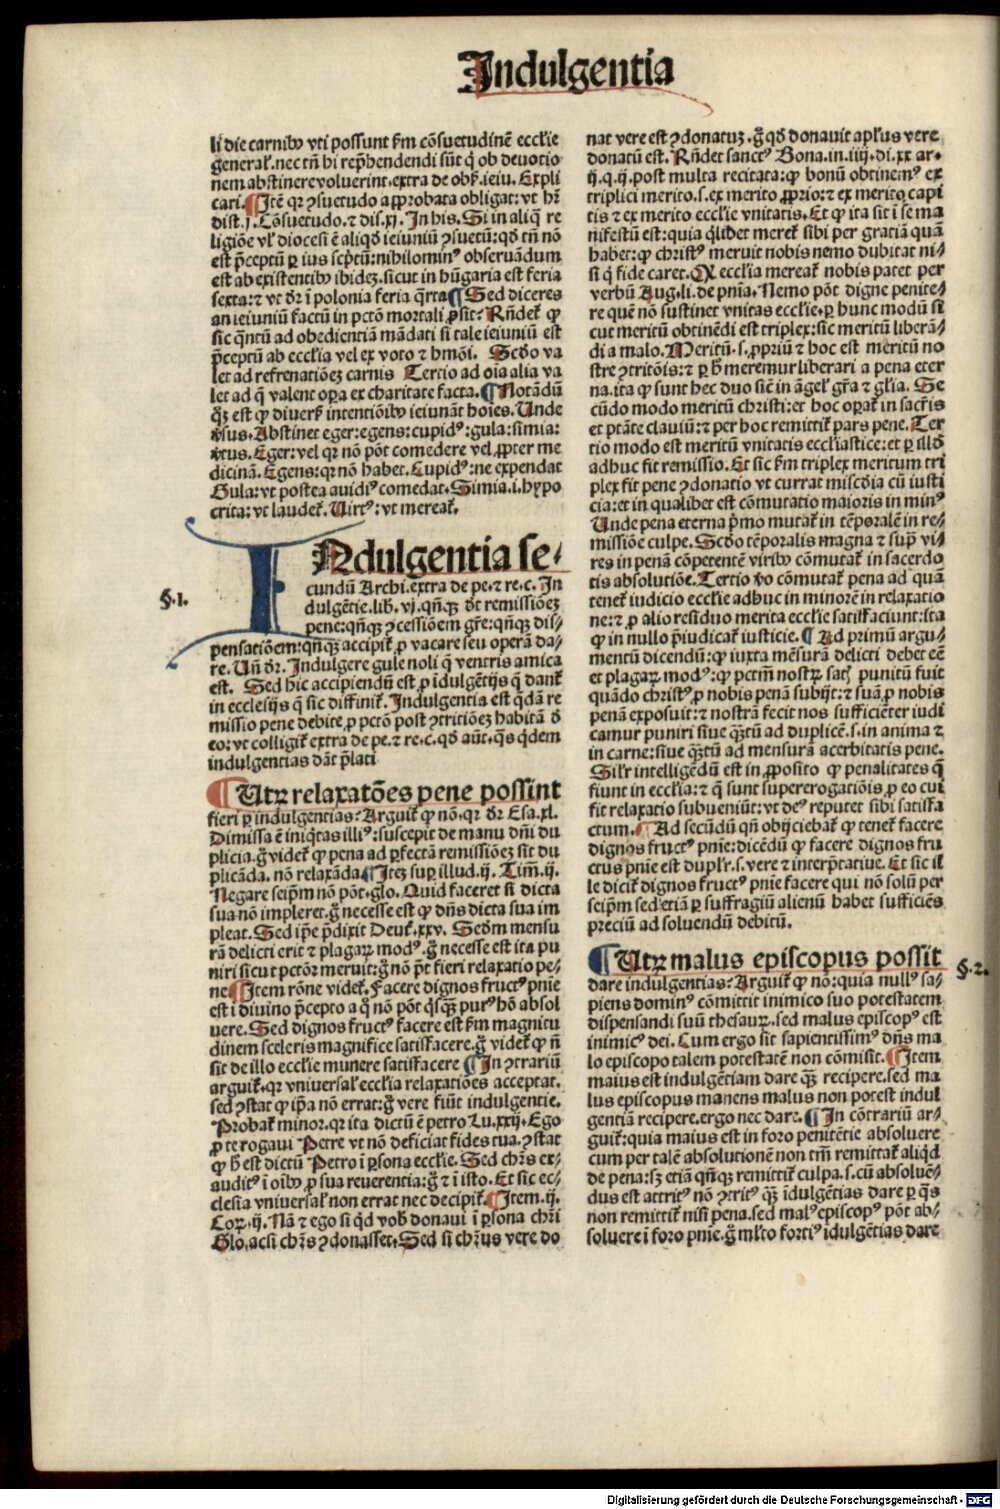 Indulgentia
li die carnibꝰ vti possunt ẜm cōsuetudinē ecclie
general̕. nec tn̄ hi rep̄hendendi sūt q̇ ob deuotio
nem abstinere voluerint. extra de obẜ. ieiu. Expli
cari. ¶ Itē qꝛ ꝯsuetudo approbata obligat: vt hr̄
dist. j. Cōsuetudo. ⁊ dis. xj. In his. Si in aliq̄ re
ligiōe vl̕ diocesi ē aliqḋ ieiuniū ꝯsuetū: qḋ tn̄ nō
est p̄ceptū ꝑ ius scp̄tū: nihilominꝰ obseruāndum
est ab existentibꝰ ibidez. sicut in hūgaria est feria
sexta: ⁊ vt dr̄ ī polonia feria q̄rta ¶ Sed diceres
an ieiuniū factū in pctō mortali ꝓsit? Rn̄det̕ ꝙ
sic q̄ntū ad obedientiā mādati si tale ieiuniū est
p̄ceptū ab ecclia vel ex voto ⁊ hmōi. Scḋo va
let ad refrenatiōez carnis Tertio ad oia alia va
let ad q̄ valent oꝑa ex charitate facta. ¶ Notādū
q̄ȝ est ꝙ diuerẜ intentiōibꝰ ieiunāt hoies. Unde
v̕sus. Abstinet eger: egens: cupidꝰ: gula: simia:
v̕tus. Eger: vel qꝛ nō pōt comedere vel ꝓpter me
dicinā. Egens: qꝛ nō habet. Cupidꝰ: ne expendat
Gula: vt postea auidiꝰ comedat. Simia. i. hypo
crita: vt laudet̕. Uirtꝰ: vt mereat̕.
§. 1.
INdulgentia se⸗
cundū Archi. extra de pe. ⁊ re. c. In
dulgētie. lib. vj. qn̄qȝ dr̄ remissiōeȝ
pene: qn̄qȝ ꝯcessiōem gr̄e: qn̄qȝ dis⸗
pensatiōem: qn̄qȝ accipit̕ ꝓ vacare seu operā da⸗
re. Un̄ dr̄. Indulgere gule noli q̄ ventris amica
est. Sed hic accipiendū est ꝓ īdulgētijs q̄ dant̕
in ecclesijs q̄ sic diffinit̕. Indulgentia est q̄dā re
missio pene debite ꝓ pctō post ꝯtritiōeȝ habitā d̄
eo: vt colligit̕ extra de pe. ⁊ re. c. qḋ aūt. q̄s q̇dem
indulgentias dāt p̄lati
¶ Utꝝ relaxatōes pene possint
fieri ꝑ indulgentias? Arguit̕ ꝙ nō. qꝛ dr̄ Esa. xl.
Dimissa ē iniq̇tas illiꝰ: suscepit de manu dn̄i du
plicia. g̊ videt̕ ꝙ pena ad ꝑfectā remissiōeȝ sit du
plicāda. nō relaxāda ¶ Iteȝ suꝑ illud. ij. Tim. ij.
Negare seip̄m nō pōt. glo. Quid faceret si dicta
sua nō impleret. g̊ necesse est ꝙ dn̄s dicta sua im
pleat. Sed ip̄e p̄dixit Deut̕. xxv. Scḋm mensu
rā delicti erit ⁊ plagaꝝ modꝰ. g̊ necesse est ita pu
niri sicut pctōꝛ meruit: g̊ nō p̄t fieri relaxatio pe⸗
ne ¶ Item rōne videt̕. Facere dignos fructꝰ pnie
est ī diuino p̄cepto a q̊ nō pōt q̇sqȝ purꝰ hō absol
uere. Sed dignos fructꝰ facere est ẜm magnitu
dinem sceleris magnifice satisfacere. g̊ videt̕ ꝙ n̄
sit de illo ecclie munere satisfacere ¶ In ꝯtrariū
arguit̕. qꝛ vniuersal̕ ecclia relaxatiōes acceptat.
sed ꝯstat ꝙ ip̄a nō errat: g̊ vere fiūt indulgentie.
Probat̕ minor. qꝛ ita dictū ē petro Lu. xxij. Ego
ꝓ te rogaui Petre vt nō deficiat fides tua. ꝯstat
ꝙ h̄ est dictū Petro ī ꝑsona ecclie. Sed chr̄s ex⸗
auditꝰ ī oībꝰ ꝓ sua reuerentia: g̊ ⁊ ī isto. Et sic ec⸗
clesia vniuersal̕ non errat nec decipit̕. ¶ Item. ij.
Coꝝ. ij. Nā ⁊ ego si q̇d vob̄ donaui ī ꝑsona chr̄i
Glo. acsi chr̄s ꝯdonasset. Sed si chr̄us vere do
nat vere est ꝯdonatuȝ. g̊ qḋ donauit aplus vere
donatū est. Rn̄det sanctꝰ Bona. in. iiij. di. xx ar⸗
ij. q. ij. post multa recitata: ꝙ bonū obtinemꝰ ex
triplici merito. s. ex merito ꝓprio: ⁊ ex merito capi
tis ⁊ ex merito ecclie vnitatis. Et ꝙ ita sit ī se ma
nifestū est: quia q̇libet meret̕ sibi per gratiā quā
habet: ꝙ christꝰ meruit nobis nemo dubitat ni⸗
si q̇ fide caret. Q ecclia mereat̕ nobis patet per
verbū Aug. li. de pnīa. Nemo pōt digne penite⸗
re quē nō sustinet vnitas ecclie. ꝑ hunc modū si
cut meritū obtinēdi est triplex: sic meritū liberā⸗
di a malo. Meritū. s. ꝓpriū ⁊ hoc est meritū no
stre ꝯtritōis: ⁊ ꝑ h̄ meremur liberari a pena eter
na. ita ꝙ sunt hec duo sicī in āgel̕ gr̄a ⁊ gl̄ia. Se
cūdo modo meritū christi: et hoc oꝑat̕ in sacr̄is
et ptāte clauiū: ⁊ per hoc remittit̕ pars pene. Ter
tio modo est meritū vnitatis ecclīastice: et ꝑ illḋ
adhuc fit remissio. Et sic ẜm triplex meritum tri
plex fit pene ꝯdonatio vt currat miscḋia cū iusti
cia: et in qualibet est cōmutatio maioris in minꝰ
Unde pena eterna p̄mo mutat̕ in tēporalē in re⸗
missiōe culpe. Scḋo tēporalis magna ⁊ suꝑ vi⸗
res in penā cōpetentē viribꝰ cōmutat̕ in sacerdo
tis absolutiōe. Tertio v̊o cōmutat̕ pena ad quā
tenet̕ iudicio ecclie adhuc in minorē in relaxatio
ne: ⁊ ꝓ alio residuo merita ecclie satisfaciunt: ita
ꝙ in nullo p̄iudicat̕ iusticie. ¶ Ad primū argu⸗
mentū dicendū: ꝙ iuxta mēsurā delicti debet eē
et plagaꝝ modꝰ: ꝙ pctm̄ nostꝝ satꝭ punitū fuit
quādo christꝰ ꝓ nobis penā subijt: ⁊ suā ꝓ nobis
penā exposuit: ⁊ nostrā fecit nos sufficiēter iudi
camur puniri siue q̄ȝtū ad duplicē. s. in anima ⁊
in carne: siue q̄ȝtū ad mensurā acerbitatis pene.
Silr̄ intelligēdū est in ꝓposito ꝙ penalitates q̄
fiunt in ecclia: ⁊ q̄ sunt supererogatiōis ꝓ eo cui
fit relaxatio subueniūt: vt deꝰ reputet sibi satisfa
ctum. ¶ Ad secūdū qn̄ obijciebat̕ ꝙ tenet̕ facere
dignos fructꝰ pnie: dicēdū ꝙ facere dignos fru
ctus pnie est dupl̕r. s. vere ⁊ interp̄tatiue. Et sic il
le dicit̕ dignos fructꝰ pnie facere qui nō solū per
seip̄m sed etiā ꝑ suffragiū alienū habet sufficiēs
preciū ad soluendū debitū.
¶ Utꝝ malus episcopus possit
§. 2.
dare indulgentias? Arguit̕ ꝙ nō: quia nullꝰ sa⸗
piens dominꝰ cōmittit inimico suo potestatem
dispensandi suū thesauꝝ. sed malus episcopꝰ est
inimicꝰ dei. Cum ergo sit sapientissimꝰ dn̄s ma
lo episcopo talem potestatē non cōmisit. ¶ Item
maius est indulgētiam dare q̄ȝ recipere. sed ma
lus episcopus manens malus non potest indul
gentiā recipere. ergo nec dare. ¶ In cōtrariū ar⸗
guit̕: quia maius est in foro penitētie absoluere
cum per talē absolutionē non tm̄ remittat̕ aliq̇d
de pena: sȝ etiā qn̄qȝ remittit̕ culpa. s. cū absoluē⸗
dus est attritꝰ nō ꝯtritꝰ q̄ȝ īdulgētias dare ꝑ q̄s
non remittit̕ nisi pena. sed malꝰ episcopꝰ pōt ab⸗
soluere ī foro pnie. g̊ ml̕to fortiꝰ īdulgētias dare
Digitalisierung gefördert durch die Deutsche Forschungsgemeinschaft - DFG